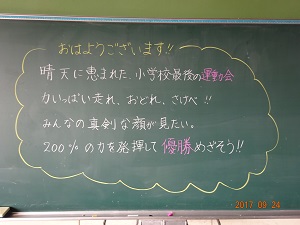 おはようございます!!
晴天に恵まれた、小学校最後の運動会
力いっぱい走れ、おどれ、さけべ!!
みんなの真剣な顔が見たい。
200%の力を発揮して優勝めざそう!!
2017 09 24